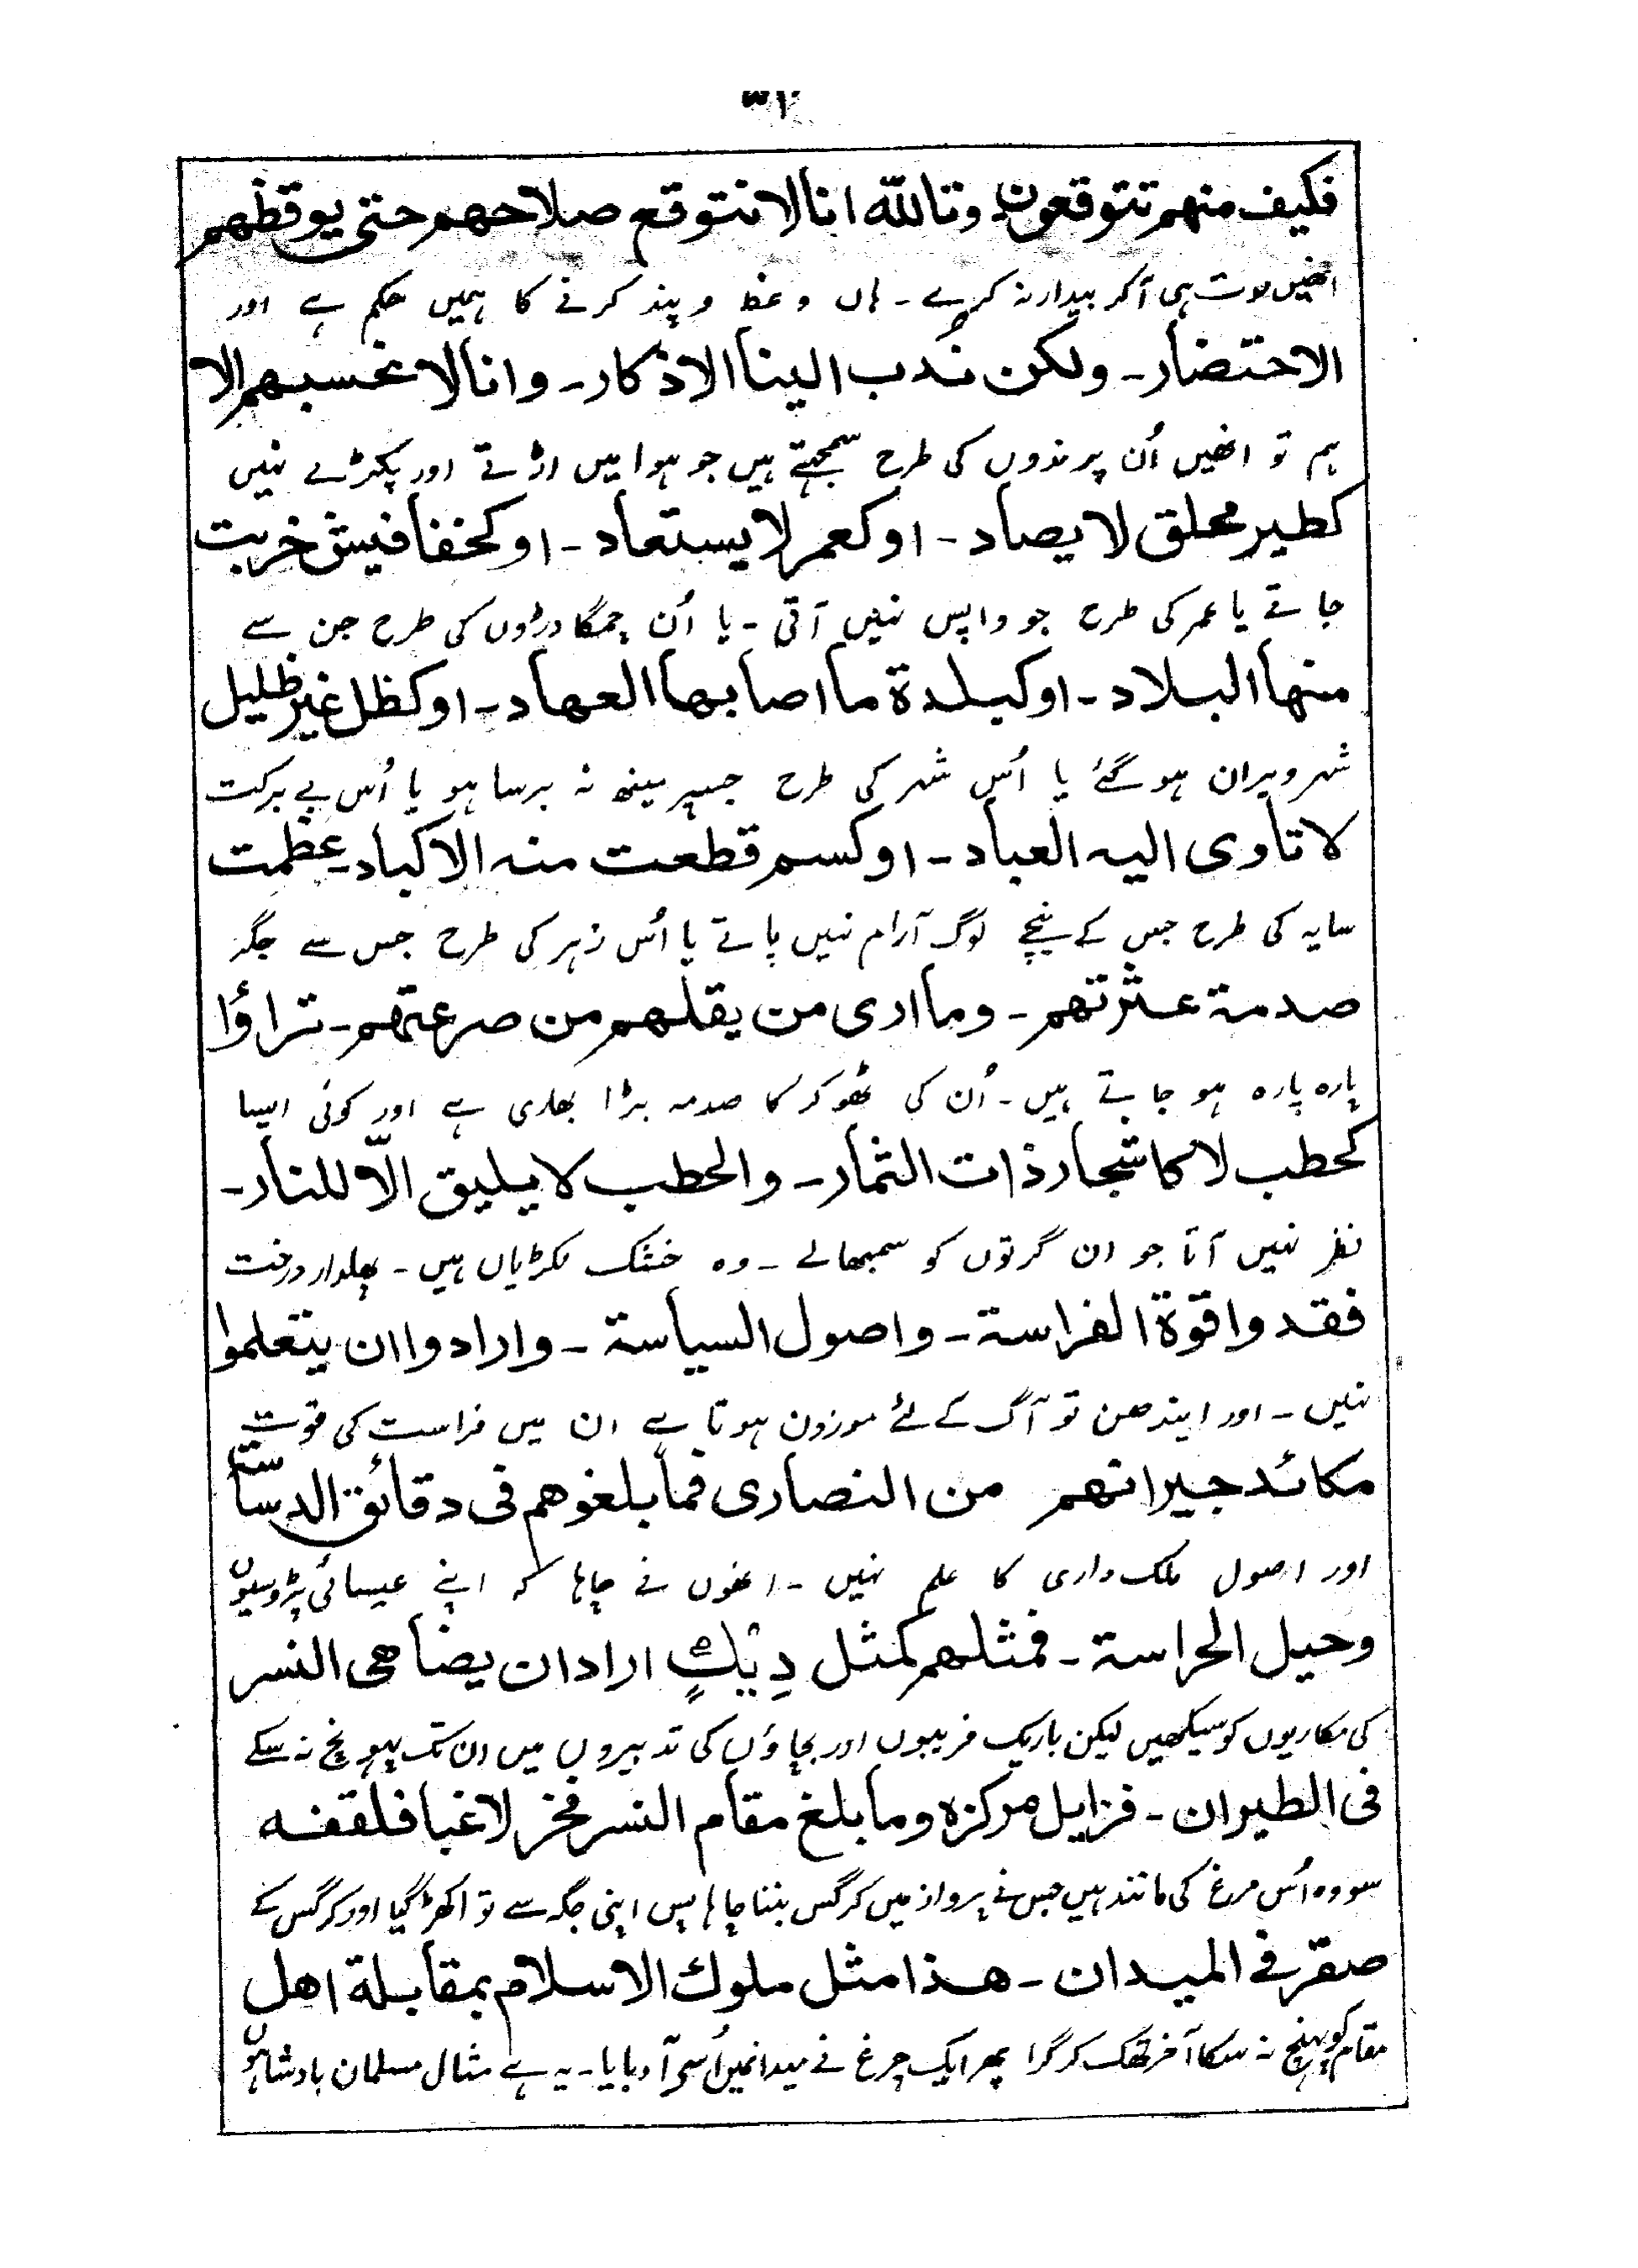 ٣٢
فکیف منهم تتوقعون وتالله انا لا نتوقع صلاحهم حتی یوقظهم
انھیں موت ہی آکر بیدار نہ کرے ۔ ہاں وعظ و پند کرنے کا ہمیں حکم ہے اور
الاحتضار ۔ ولکن ندب الینا الاذکار ۔ وانا لا نحسبهم الا
ہم تو انھیں اُن پرندوں کی طرح سمجھتے ہیں جو ہوا میں اڑتے اور پکڑے نہیں
کطیر محلق لا یصاد ۔ او کعمر لا یستعاد ۔ او کخفافیش خربت
جاتے یا عمر کی طرح جو واپس نہیں آتی ۔ یا اُن چمگادڑوں کی طرح جن سے
منها البلاد ۔ او کبلدة ما اصابها العهاد ۔ او کظل غیر ظلیل
شہر ویران ہو گئے یا اُس شہر کی طرح جسپر مینھ نہ برسا ہو یا اُس بے برکت
لا تاوی الیه العباد ۔ او کسم قطعت منه الاکباد ۔ عظمت
سایہ کی طرح جس کے نیچے لوگ آرام نہیں پاتے یا اُس زہر کی طرح جس سے جگر
صدمة عثرتهم ۔ وما اری من یقلهم من صرعتهم ۔ تراؤا
پارہ پارہ ہو جاتے ہیں ۔ اُن کی ٹھوکر کا صدمہ بڑا بھاری ہے اور کوئی ایسا
کحطب لا کاشجار ذات الثمار ۔ والحطب لا یلیق الّا للنار ۔
نظر نہیں آتا جو ان گرتوں کو سمبھالے ۔ وہ خشک لکڑیاں ہیں ۔ پھلدار درخت
فقدوا قوة الفراسة ۔ واصول السیاسة ۔ وارادوا ان یتعلموا
نہیں ۔ اور ایندھن تو آگ کے لئے موزون ہوتا ہے ان میں فراست کی قوت
مکائد جیرانهم من النصاری فما بلغوهم فی دقائق الدساسة
اور اصول ملک داری کا علم نہیں ۔ انھوں نے چاہا کہ اپنے عیسائی پڑوسیوں
وحیل الحراسة ۔ فمثلهم کمثل دِیْكٍ اراد ان یضاهی النسر
کی مکاریوں کو سیکھیں لیکن باریک فریبوں اور بچاؤں کی تدبیروں میں ان تک پہونچ نہ سکے
فی الطیران ۔ فزایل مرکزه وما بلغ مقام النسر فخر لاغبا فلقفه
سو وہ اُس مرغ کی مانند ہیں جس نے پرواز میں کرگس بننا چاہا پس اپنی جگہ سے تو اکھڑ گیا اور کرگس کے
صقر فی المیدان ۔ هذا مثل ملوك الاسلام بمقابلة اهل
مقام کو پہنچ نہ سکا آخر تھک کر گرا پھر ایک چرغ نے میدانمیں اُسے آ دبایا ۔ یہ ہے مثال مسلمان بادشاہوں